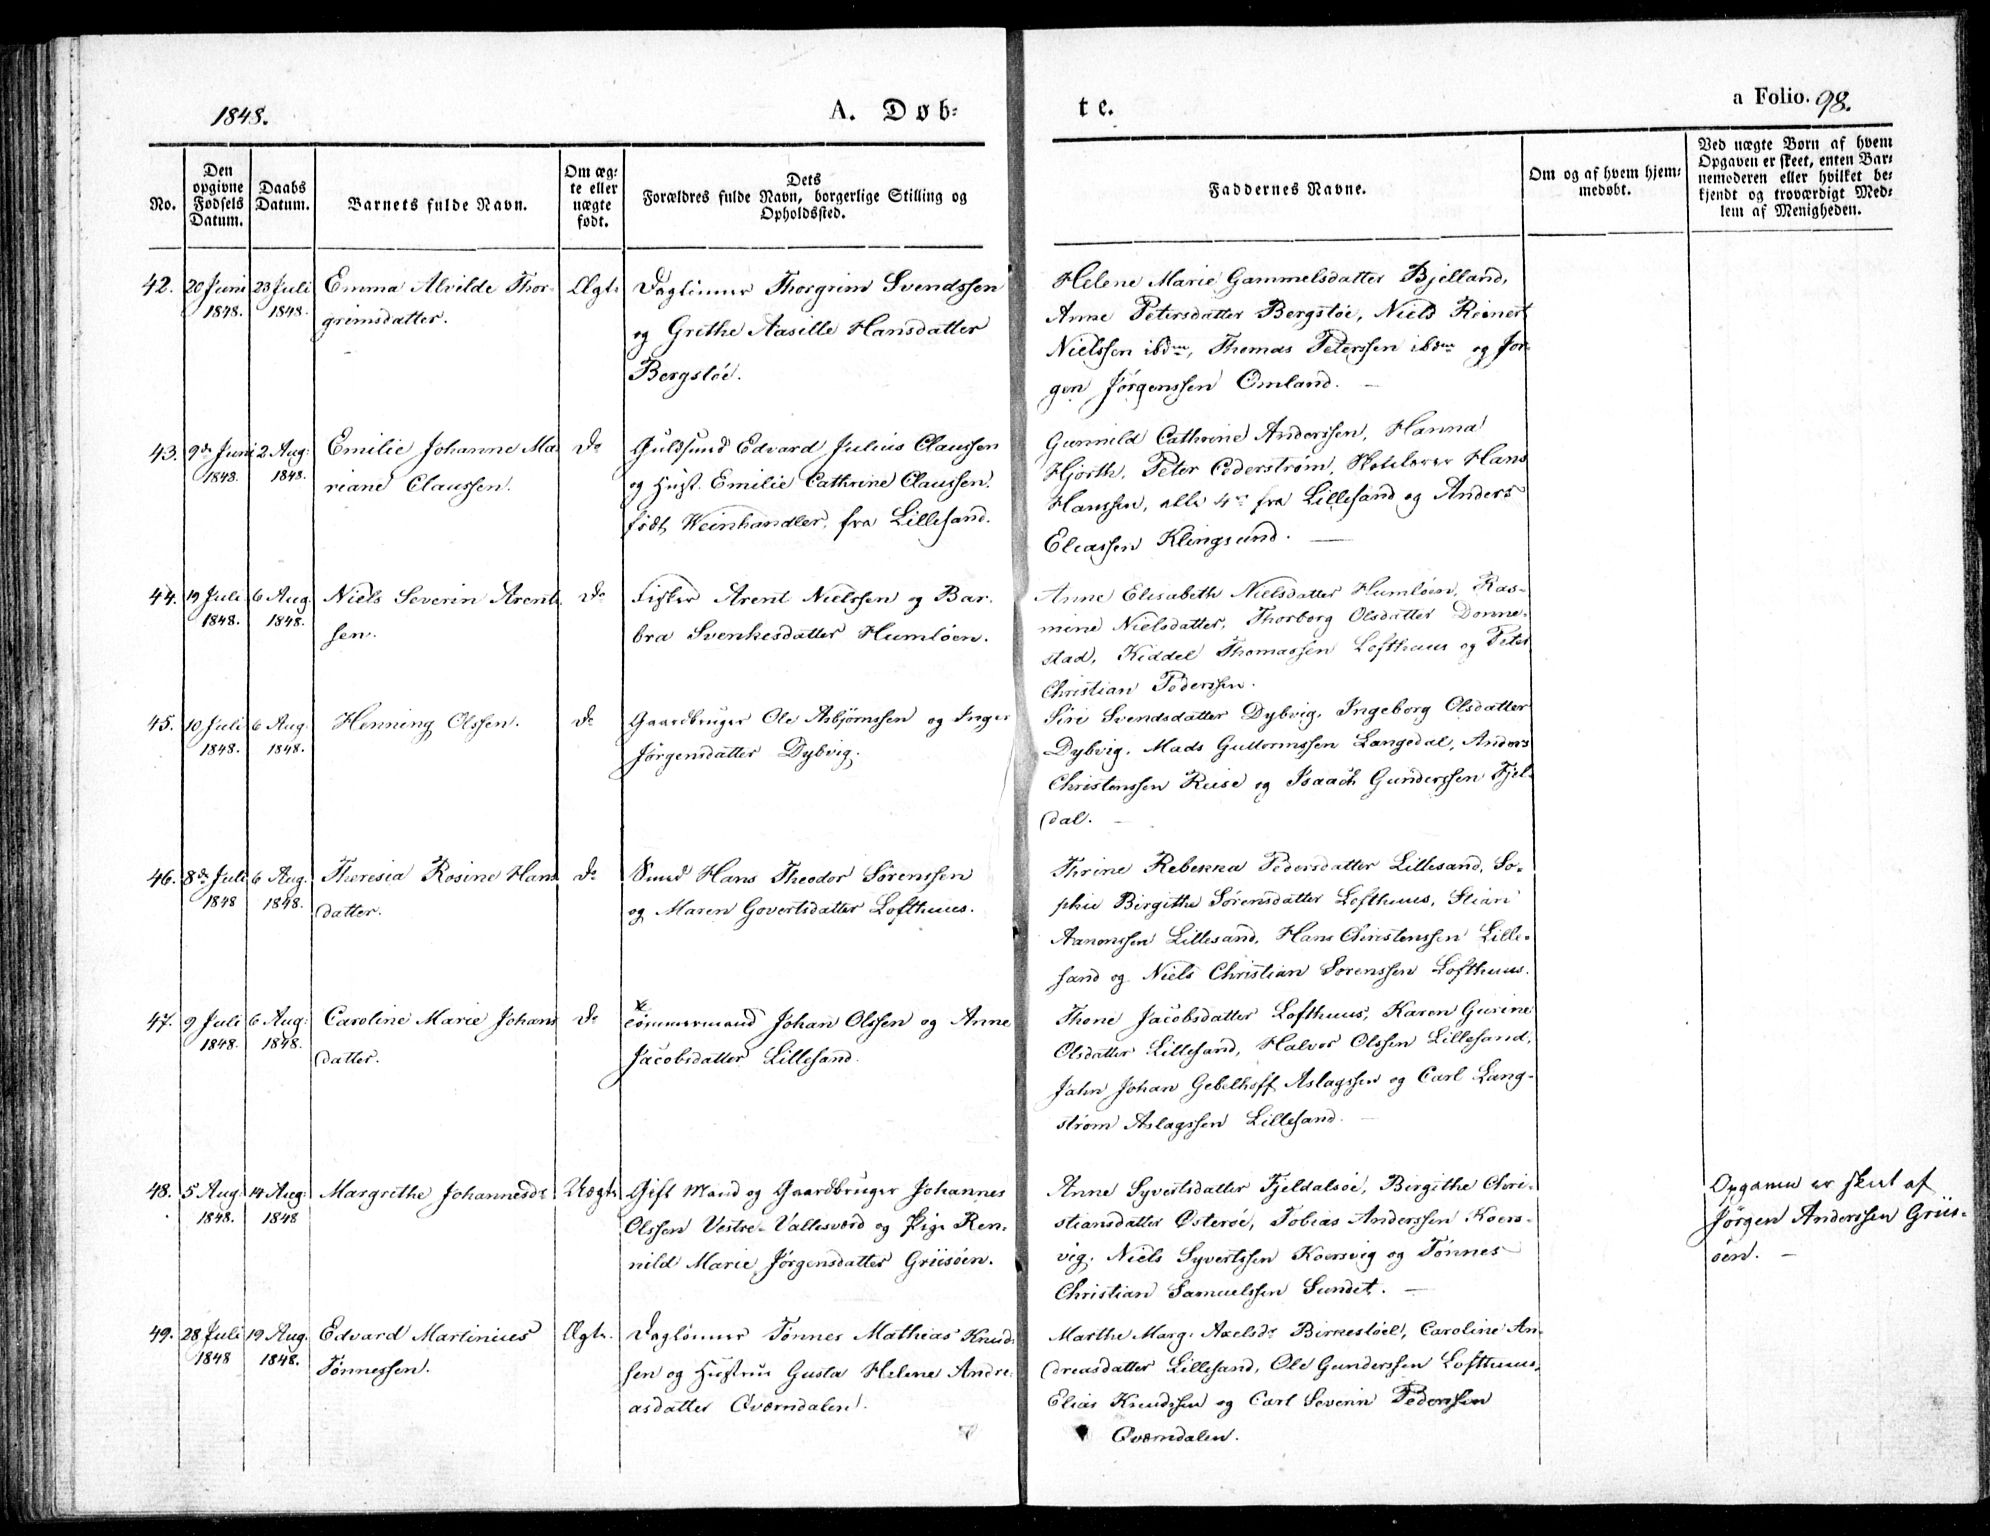 1848.
A. Døb-
te.
a Folio. 98.
No.
Den opgivne Fødsels Datum.
Daabs Datum.
Barnets fulde Navn.
Om ægte eller uægte født.
Dets Forældres fulde Navn, borgerlige Stilling og Opholdssted.
Faddernes Navne.
Om og af hvem hjemmedøbt.
Ved uægte Børn af hvem Opgaven er skeet, enten Barnemoderen eller hvilket bekjendt og troværdigt Medlem af Menigheden.
42. 20 Juni 1848. 23 Juli 1848.
Emma Alvilde Thor-
grimsdatter.
Ægt.
Daglønner Thorgrim Svendssen
og Grethe Aasille Hansdatter
Bergsløe.
Helene Marie Gammelsdatter Bjelland,
Anne Petersdatter Bergsløe, Niels Reinert
Nielssen ibdm, Thomas Peterssen ibdm og Jør-
gen Jørgenssen Omland. —
43. 9de Juni 1848. 2 Aug: 1848.
Emilie Johanne Ma
riane Claussen.
Do
Guldsmed Edvard Julius Claussen
og Hust. Emilie Cathrine Claussen
født Weinhandler, fra Lillesand.
Gunnild Cathrine Anderssen, Hanna
Hjorth, Peter Cederstrøm, Skolelærer Hans
Hanssen, alle 4re fra Lillesand og Anders
Eliassen Klingsund. —
44. 19 Juli 1848. 6 Aug. 1848.
Niels Severin Arent
sen.
Do
Fisker Arent Nielssen og Bar-
bra Svenkesdatter Humløen.
Anne Elisabeth Nielsdatter Humløen, Ras-
mine Nielsdatter, Thorborg Olsdatter Donne-
stad, Kiddel Thomassen Lofthuus og Peter
Christian Pederssen.
45. 10 Juli 1848. 6 Aug. 1848.
Henning Olssen.
Do
Gaardbruger Ole Asbjørnssen og Inger
Jørgensdatter Dybvig.
Siri Svendsdatter Dybvig, Ingeborg Olsdatter
Dybvig, Mads Guttormssen Langedal, Anders
Christenssen Ruse og Isaach Gunderssen Fjel-
dal. —
46. 8de Juli 1848 6 Aug. 1848.
Theresia Rosine Hans
datter.
Do
Smed Hans Theodor Sørenssen
og Maren Govertsdatter Lofthuus.
Thrine Rebekka Pedersdatter Lillesand, So-
phie Birgithe Sørensdatter Lofthuus, Stian
Aanonssen Lillesand, Hans Christenssen Lille-
sand og Niels Christian Sorenssen Lofthuus.
47. 9 Juli 1848. 6 Aug: 1848.
Caroline Marie Johans
datter.
Do
Tømmermand Johan Olssen og Anne
Jacobsdatter Lillesand.
Thone Jacobsdatter Lofthuus, Karen Gurine
Olsdatter Lillesand, Halvor Olssen Lillesand,
Jahn Johan Gebelhoff Aslagssen og Carl Lang-
strøm Aslagssen Lillesand. —
48. 5 Aug. 1848. 14 Aug: 1848
Margrethe Johannesdr
Uægt.
Gift Mand og Gaardbruger Johannes
Olssen Vestre-Vallesværd og Pige Ren-
nild Marie Jørgensdatter Griisøen.
Anne Syvertsdatter Fjeldalsøe, Birgithe Chri-
stiansdatter Østerøe, Tobias Anderssen Koers-
vig, Niels Syvertssen Koersvig og Tønnes
Christian Samuelssen Sundet. —
Opgaven er skeet af
Jørgen Anderssen Griis-
øen. —
49. 28 Juli 1848 19 Aug. 1848.
Edvard Martinius
Tønnessen.
Ægte.
Daglønner Tønnes Mathias Knud-
sen og Hustrue Gusta Helene Andre-
asdatter Qværndalen.
Marthe Marg. Axelsdr Birkestøel, Caroline An-
dreasdatter Lillesand, Ole Gunderssen Lofthuus,
Elias Knudssen og Carl Severin Pederssen
Qværndalen.